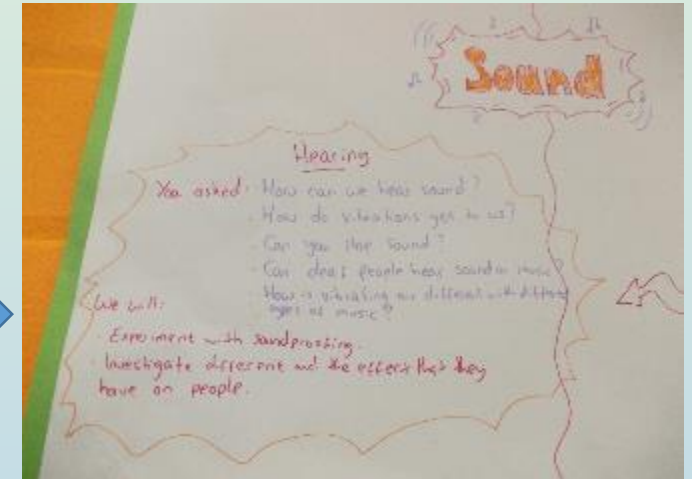 Sound
Hearing
You asked: How can we hear sound?
- How do vibrations get to us?
- Can you stop sound?
- Can deaf people hear sound or music?
- How is vibrating air different with different
types of music?
We will:
- Experiment with soundproofing.
- Investigate different and the effect that they
have on people.